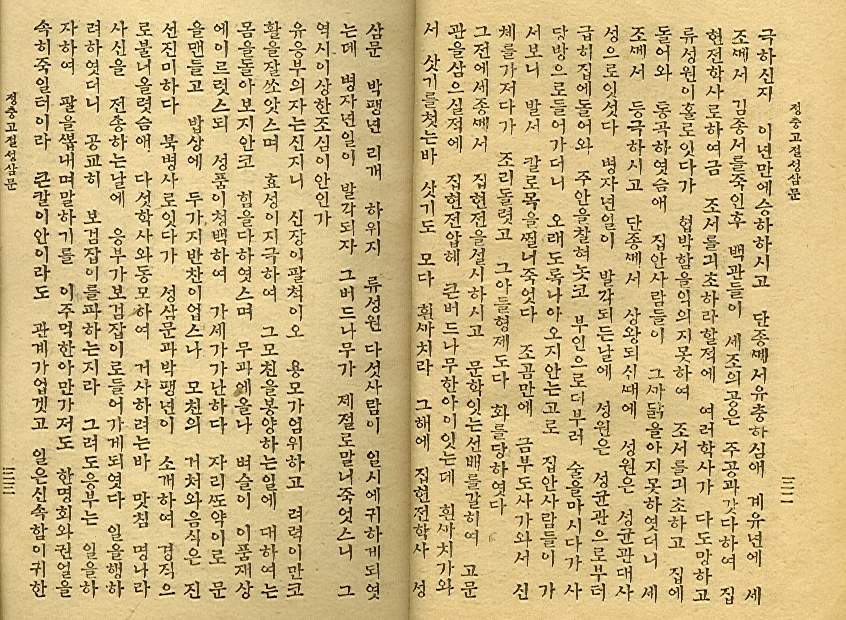 정충고절성삼문
三二
극하신지 이년만에승하하시고 단종께서유충하심애 계유년에 세
조께서 김종서를죽인후 백관들이 세조의공은 주공과갓다하여 집
현전학사로하여금 조서를긔초하라할적에 여러학사가 다도망하고
류성원이홀로잇다가 협박함을의의지못하여 조서를긔초하고 집에
돌어와 통곡하엿슴애 집안사람들이 그까닭을아지못하엿더니 세
조께서 등극하시고 단종께서 상왕되신때에 성원은 성균관대사
성으로잇섯다 병자년일이 발각되든날에 성원은 성균관으로부터
급히집에돌어와 주안을찰혀놋코 부인으로더부러 술을마시다가 사
당방으로들어가더니 오래도록나아오지안는고로 집안사람들이 가
서보니 발서 칼로목을찔너죽엇다 조곰만에 금부도사가와서 신
체를가저다가 조리돌렷고 그아들형제도다 화를당하엿다
그전에세종께서 집현전을설시하시고 문학잇는선배를갈히여 고문
관을삼으실적에 집현전압헤 큰버드나무한아이잇는데 흰까치가와
서 삿기를첫는바 삿기도 모다 흰까치라 그해에 집현전학사 성
삼문 박팽년 리개 하위지 류성원 다섯사람이 일시에귀하게되엿
는데 병자년일이 발각되자 그버드나무가 제절로말너죽엇스니 그
역시이상한조심이안인가
유응부의자는신지니 신장이팔척이오 용모가엄위하고 려력이만코
활을잘쏘앗스며 효성이지극하여 그모친을봉양하는일에 대하여는
몸을돌아보지안코 힘을다하엿스며 무과에올나 벼슬이 이품재상
에이르럿스되 성품이청백하여 가세가가난하다 자리또약이로 문
을맨들고 밥상에 두가지반찬이업스나 모친의 거처와음식은 진
선진미하다 북병사로잇다가 성삼문과박팽년이 소개하여 경직으
로불녀올렷슴애 다섯학사와동모하여 거사하려는바 맛침 명나라
사신을 전송하는날에 응부가보검잡이로들어가게되엿다 일을행하
려하엿더니 공교히 보검잡이를파하는지라 그려도응부는 일을하
자하여 팔을뽑내며말하기를 이주먹한아만가저도 한명회와권얼을
속히죽일터이라 큰칼이안이라도 관계가업겟고 일은신속함이귀한
정충고절성삼문
三三